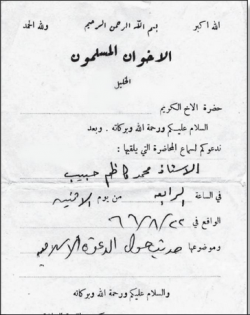 الله اكبر بسم الله الرحمن الرحيم ولله الحمد
الاخوان المسلمون
الخليل
حضرة الاخ الكريم
السلام عليكم ورحمة الله وبركاته . وبعد
ندعوكم لسماع المحاضرة التي يلقيها :
الاستاذ محمد كاظم حبيب
في الساعة الرابعة من يوم الاثنين
الواقع في ٢٢/٨/٦٦
وموضوعها حديث حول الدعوة الاسلامية
والسلام عليكم ورحمة الله وبركاته